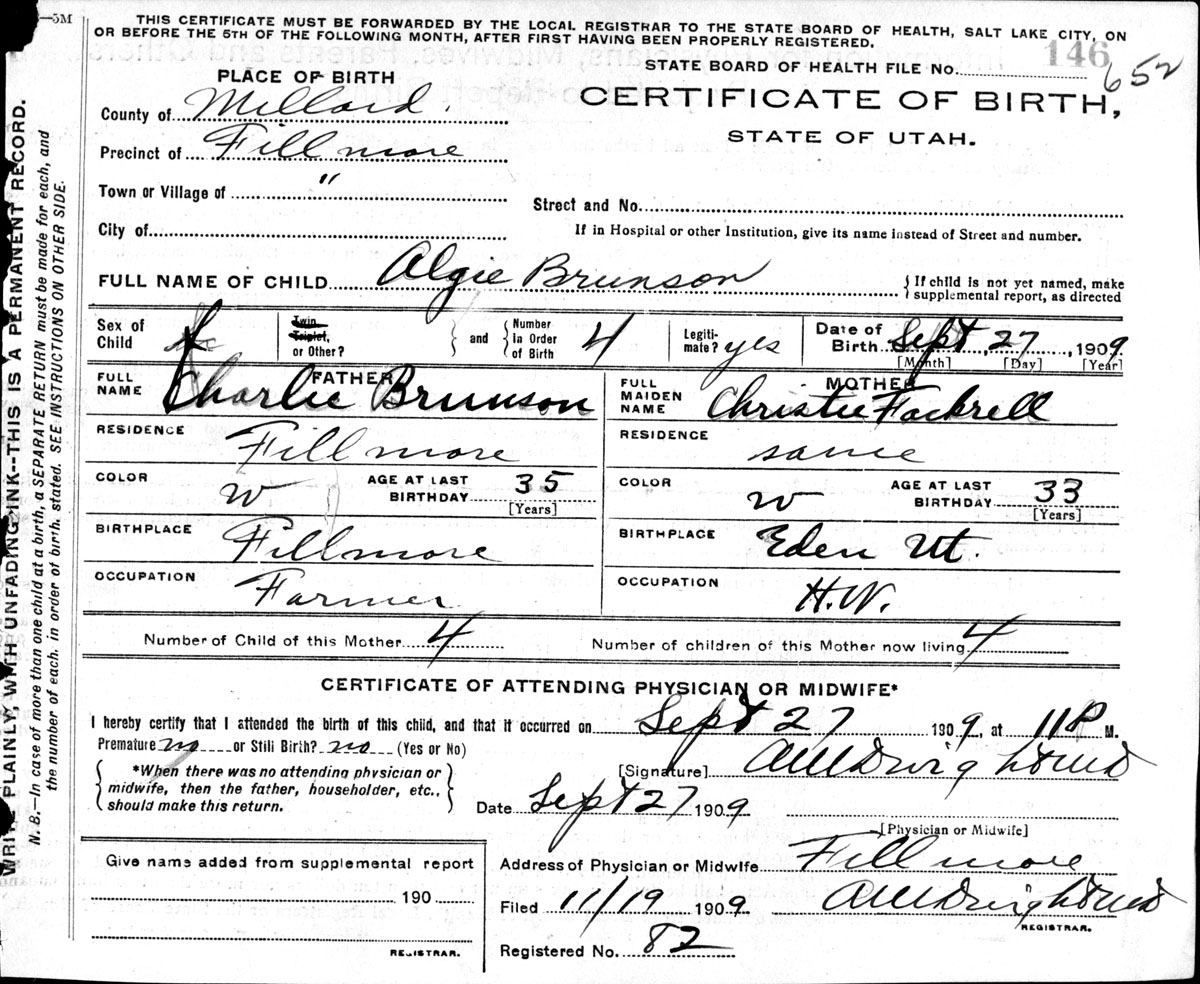 —5M
THIS CERTIFICATE MUST BE FORWARDED BY THE LOCAL REGISTRAR TO THE STATE BOARD OF HEALTH, SALT LAKE CITY, ON
OR BEFORE THE 5TH OF THE FOLLOWING MONTH, AFTER FIRST HAVING BEEN PROPERLY REGISTERED.
146
652
PLACE OF BIRTH
STATE BOARD OF HEALTH FILE No.
CERTIFICATE OF BIRTH,
STATE OF UTAH.
County of Millard
Precinct of Fillmore
Town or Village of "
Street and No.
City of
If in Hospital or other Institution, give its name instead of Street and number.
FULL NAME OF CHILD Algie Brunson
{ If child is not yet named, make
supplemental report, as directed
Sex of Child f
Twin, Triplet, or Other?
and
Number In Order of Birth 4
Legiti-mate? yes
Date of Birth Sept, 27, 1909
[Month] [Day] [Year]
FATHER
FULL NAME Charlie Brunson
MOTHER
FULL MAIDEN NAME Christie Fackrell
RESIDENCE Fillmore
RESIDENCE same
COLOR W AGE AT LAST BIRTHDAY 35 [Years]
COLOR W AGE AT LAST BIRTHDAY 33 [Years]
BIRTHPLACE Fillmore
BIRTHPLACE Eden Ut.
OCCUPATION Farmer
OCCUPATION H.W.
Number of Child of this Mother 4
Number of children of this Mother now living 4
CERTIFICATE OF ATTENDING PHYSICIAN OR MIDWIFE*
I hereby certify that I attended the birth of this child, and that it occurred on Sept 27 1909, at 11 P M.
Premature no or Still Birth? no (Yes or No)
{ *When there was no attending physician or
midwife, then the father, householder, etc.,
should make this return. }
[Signature]
Date Sept 27 1909
[Physician or Midwife]
Give name added from supplemental report
190
REGISTRAR.
Address of Physician or Midwife Fillmore
Filed 11/19 1909
REGISTRAR.
Registered No. 82
WRITE PLAINLY, WITH UNFADING INK--THIS IS A PERMANENT RECORD.
N. B.—In case of more than one child at a birth, a SEPARATE RETURN must be made for each, and
the number of each, in order of birth, stated. SEE INSTRUCTIONS ON OTHER SIDE.